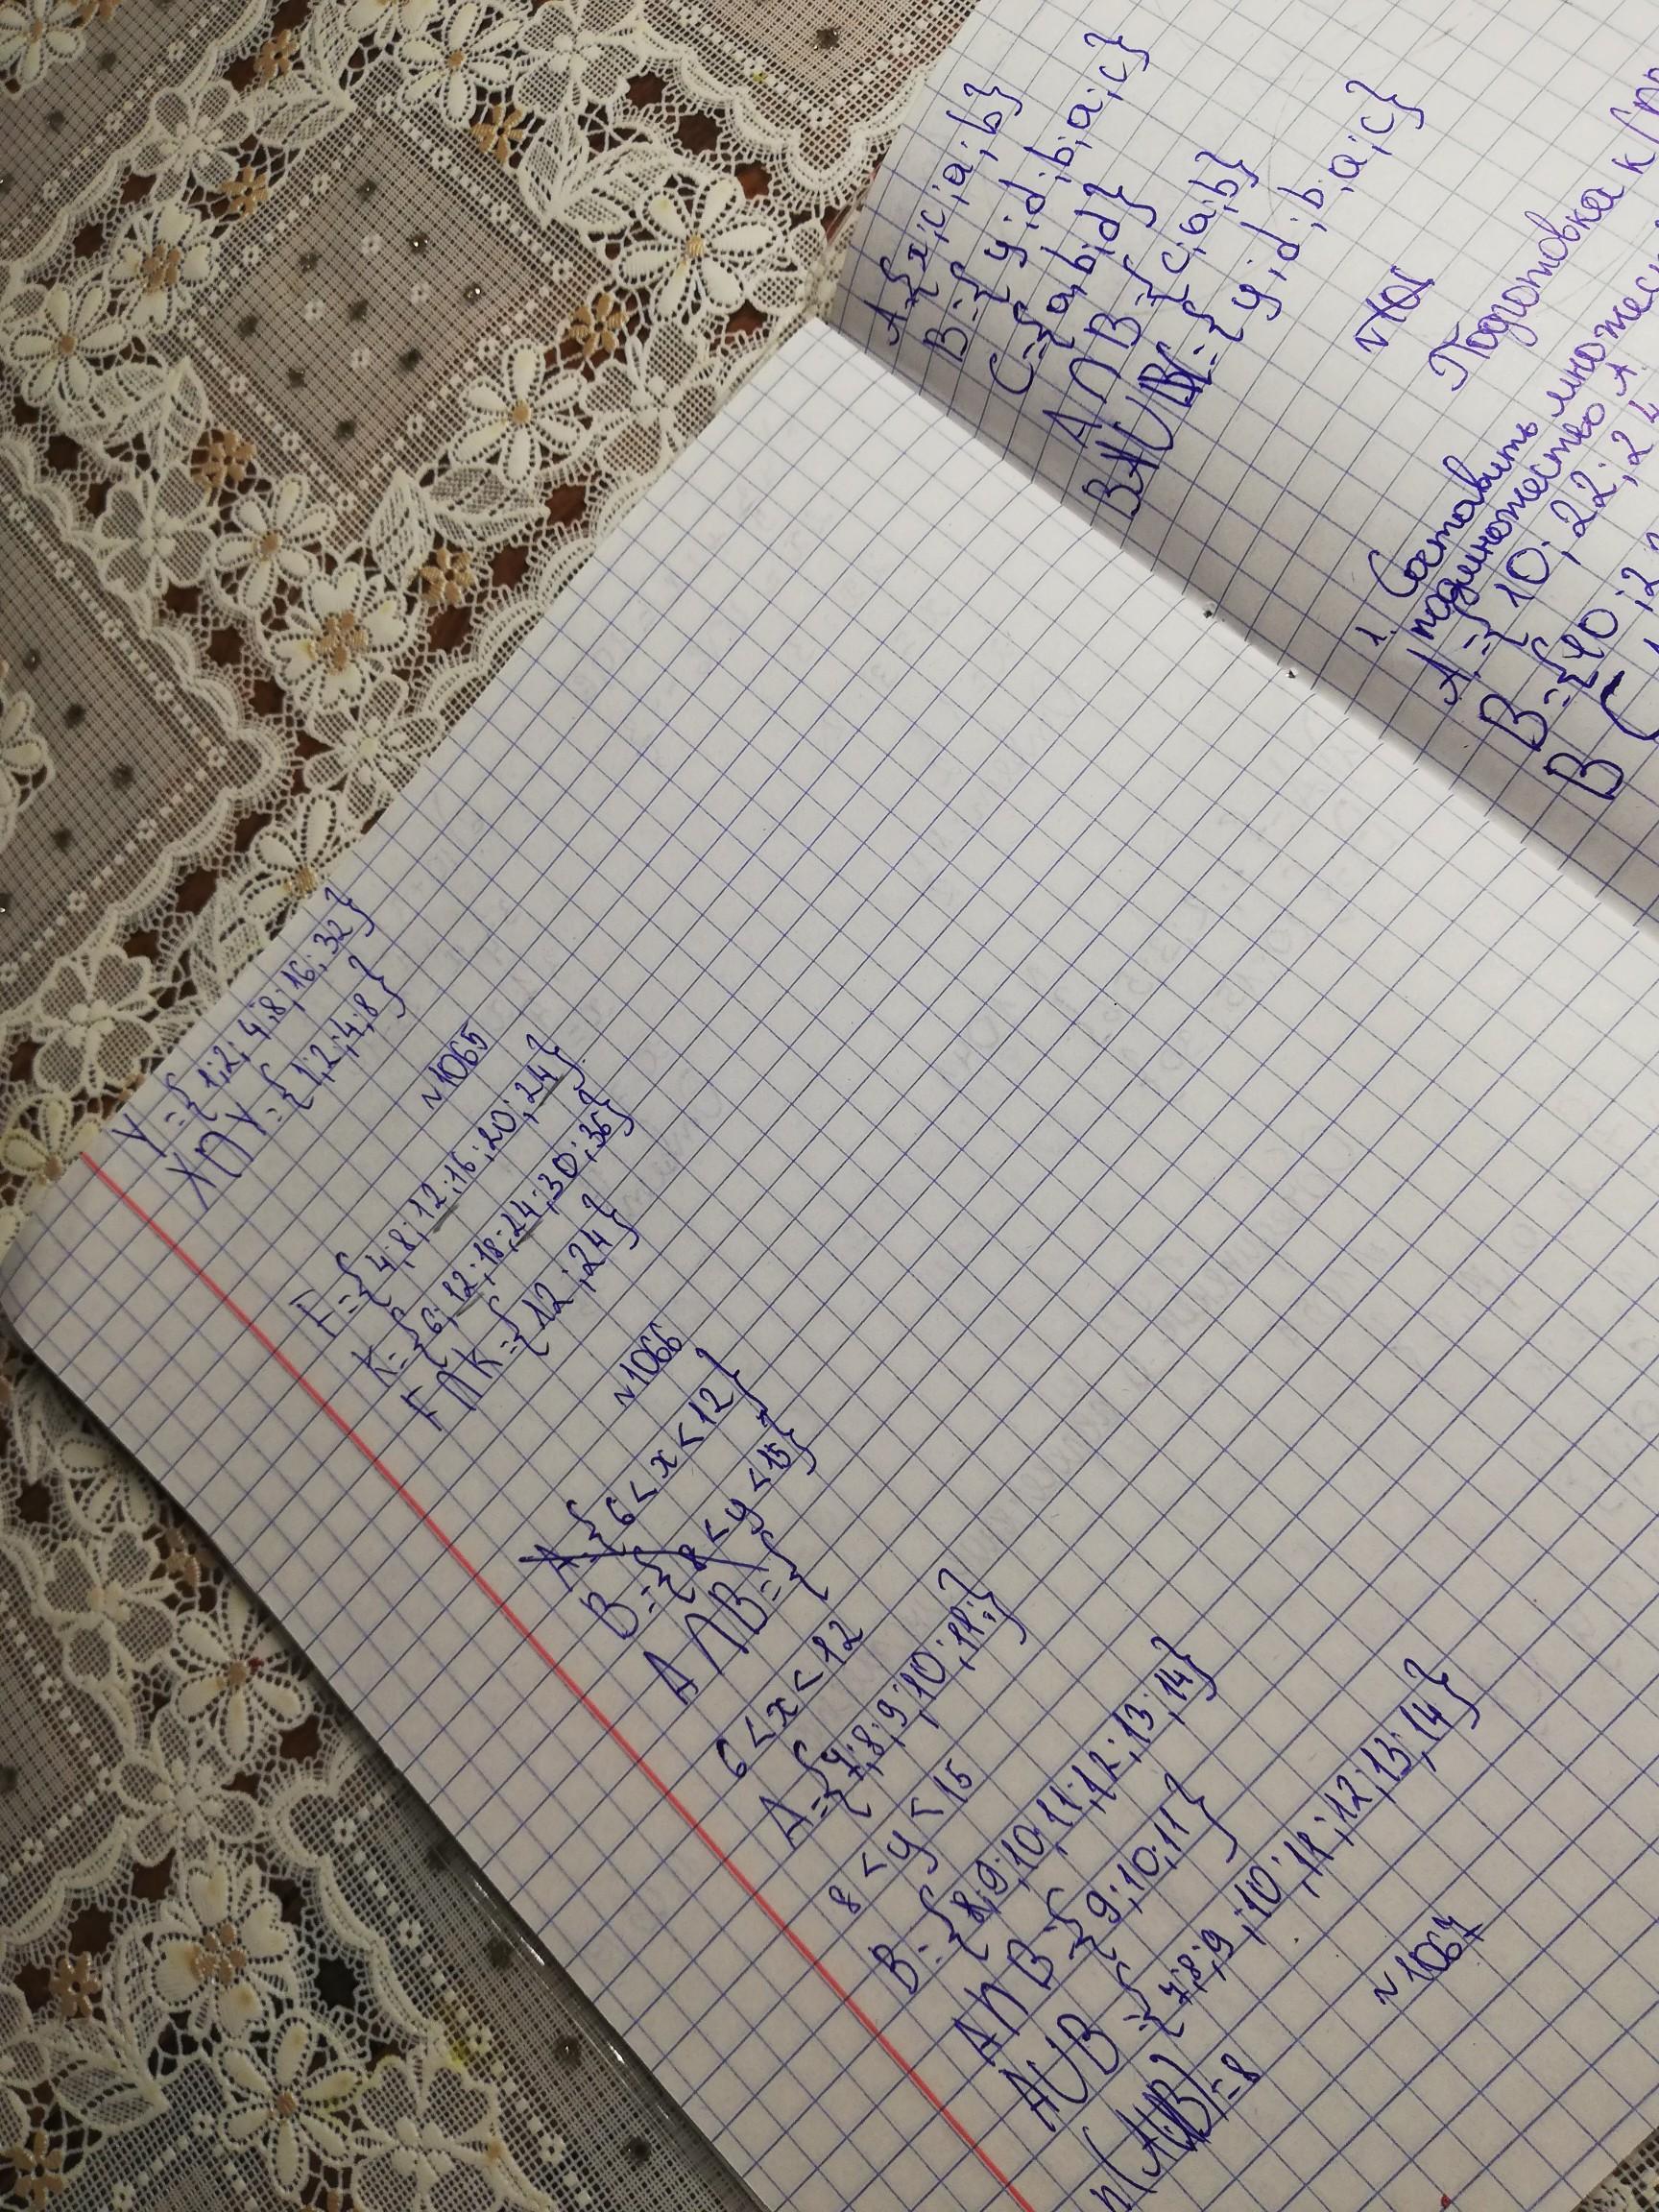 Y={1;2;4;8;16;32}
X∩Y={1;2;4;8}
№1065
F={4;8;12;16;20;24}
K={6;12;18;24;30;36}
F∩K={12;24}
№1066
A={6<x<12}
B={8<y<15}
A∩B={
6<x<12
A={7;8;9;10;11;}
8<y<15
B={8;9;10;11;12;13;14}
A∩B={9;10;11}
A∪B={7;8;9;10;11;12;13;14}
n(A∪B)=8
№1067
A={x;c;a;b}
B={y;d;b;a;c}
C={a;b;d}
A∩B={c;a;b}
={y;d;b;a;c}
Подготовка к
1. Составить
подмножество A.
A={10;22;24
B={10;2
B⊂